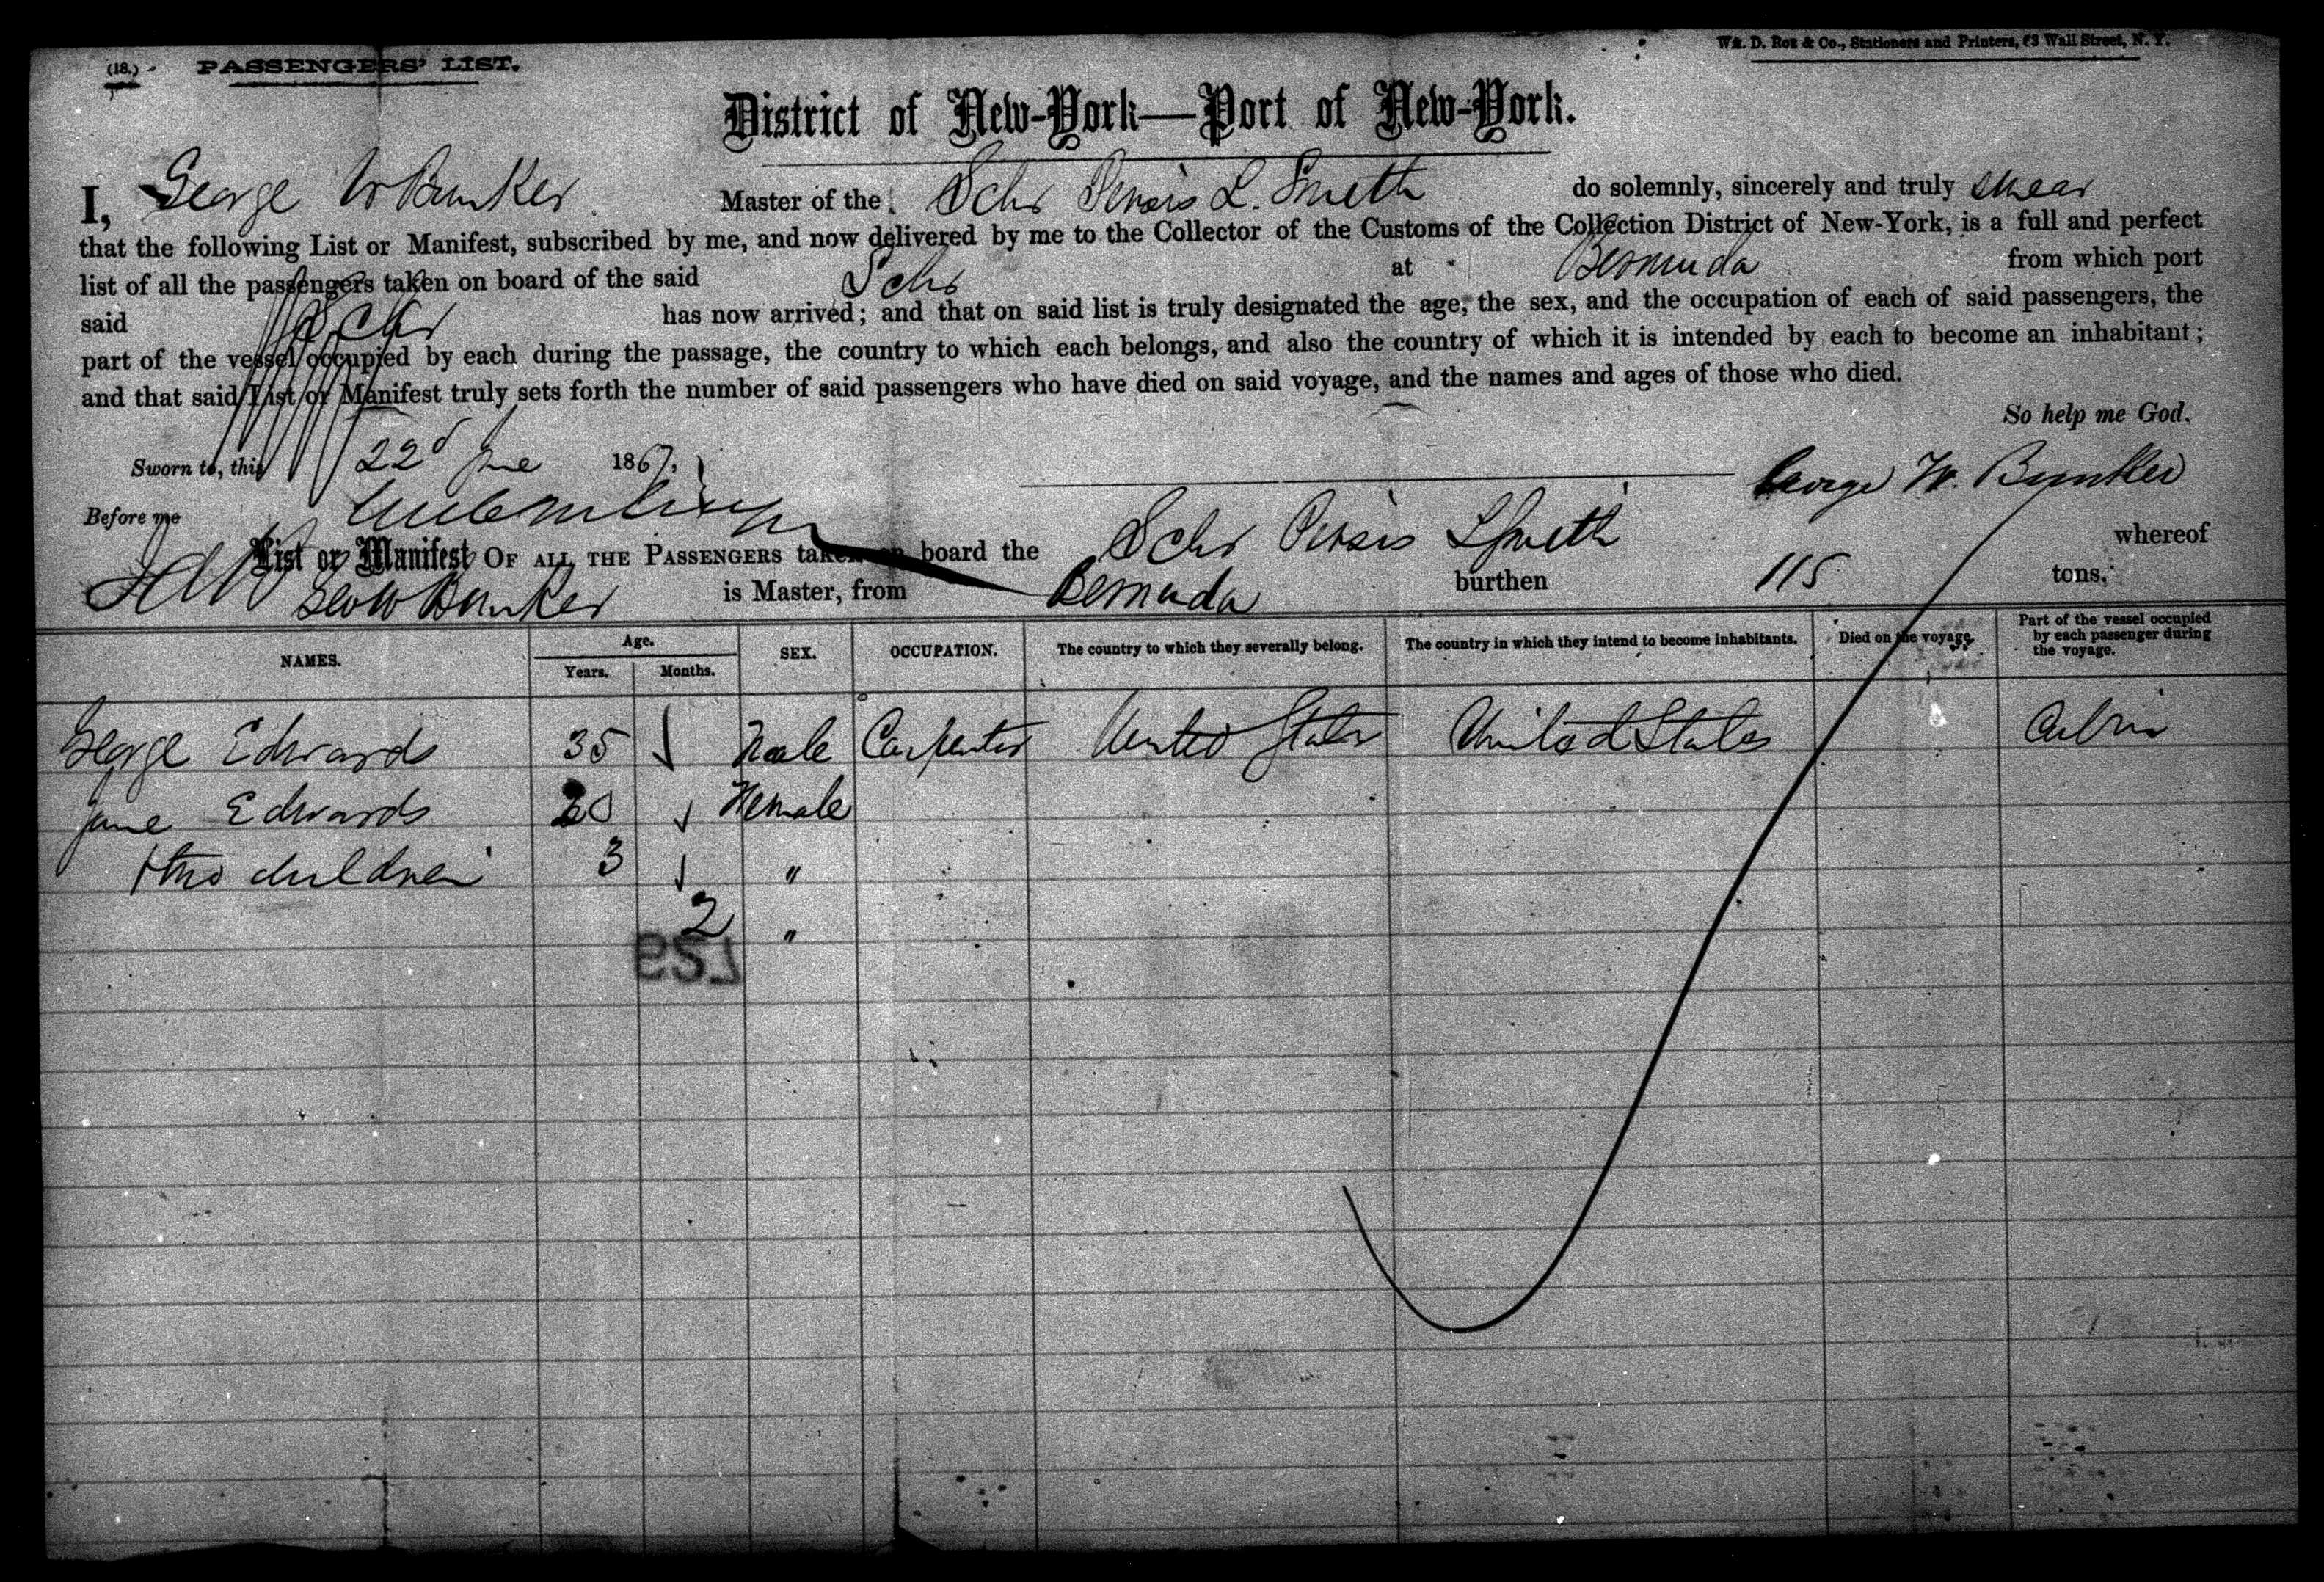 (18.) PASSENGERS' LIST.
Wm. D. Roe & Co., Stationers and Printers, 63 Wall Street, N. Y.
District of New-York—Port of New-York.
I, George W Bunker Master of the Schr Persis L. Smith do solemnly, sincerely and truly swear
that the following List or Manifest, subscribed by me, and now delivered by me to the Collector of the Customs of the Collection District of New-York, is a full and perfect
list of all the passengers taken on board of the said Schr at Bermuda from which port
said Schr has now arrived; and that on said list is truly designated the age, the sex, and the occupation of each of said passengers, the
part of the vessel occupied by each during the passage, the country to which each belongs, and also the country of which it is intended by each to become an inhabitant;
and that said List or Manifest truly sets forth the number of said passengers who have died on said voyage, and the names and ages of those who died.
So help me God.
Sworn to, this 22d June 1867.
George W. Bunker
Before me
List or Manifest OF ALL THE PASSENGERS taken on board the Schr Persis L Smith whereof
Geo W Bunker is Master, from Bermuda burthen 115 tons.
NAMES. Age. Years. Months. SEX. OCCUPATION. The country to which they severally belong. The country in which they intend to become inhabitants. Died on the voyage. Part of the vessel occupied by each passenger during the voyage.
George Edwards 35 Male Carpenter United States United States Cabin
Jane Edwards 20 Female
+ two children 3 "
2 "
129